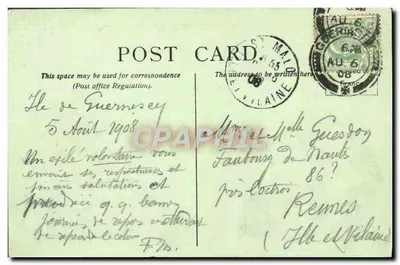 POST CARD.
This space may be used for correspondence
(Post Office Regulations).
The address to be written here
Ile de Guernesey
5 Août 1908
Un exilé volontaire vous
envoie ses respectueuses et
salutations et
q.q. bonnes
journées de repos
de
GUERNSEY
AU 6
08
AU 6
08
ST MALO
ET VILAINE
08
Mme et Melle Guesdon
Faubourg de Nantes
86?
près l'octroi
Rennes
(Ille et Vilaine)